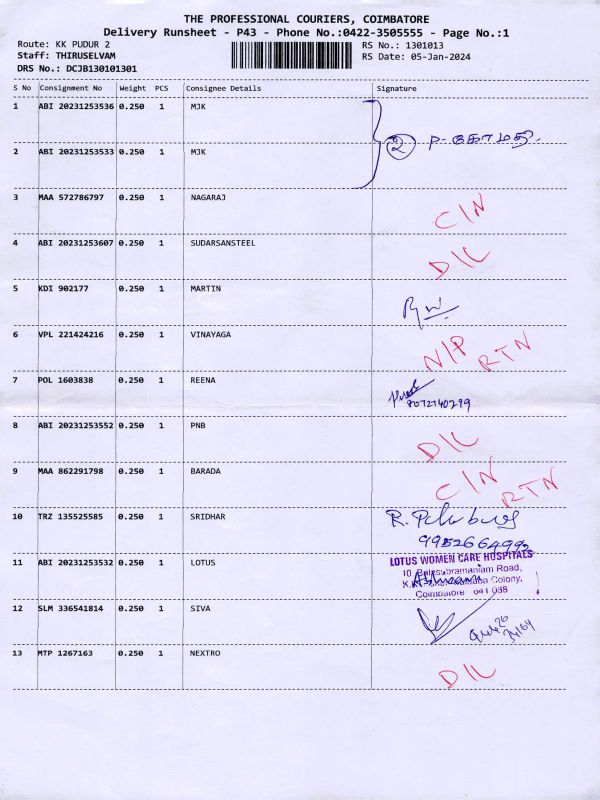 THE PROFESSIONAL COURIERS, COIMBATORE
Delivery Runsheet - P43 - Phone No.:0422-3505555 - Page No.:1
Route: KK PUDUR 2
RS No.: 1301013
Staff: THIRUSELVAM
RS Date: 05-Jan-2024
DRS No.: DCJB130101301
S No Consignment No Weight PCS Consignee Details Signature
1 ABI 20231253536 0.250 1 MJK
2 ABI 20231253533 0.250 1 MJK
② P. கோமதி.
3 MAA 572786797 0.250 1 NAGARAJ C/N
4 ABI 20231253607 0.250 1 SUDARSANSTEEL D/L
5 KDI 902177 0.250 1 MARTIN
6 VPL 221424216 0.250 1 VINAYAGA N/P RTN
7 POL 1603838 0.250 1 REENA
8 ABI 20231253552 0.250 1 PNB D/L
9 MAA 862291798 0.250 1 BARADA C/N RTN
10 TRZ 135525585 0.250 1 SRIDHAR R.
11 ABI 20231253532 0.250 1 LOTUS LOTUS WOMEN CARE HOSPITALS
10, Balasubramaniam Road,
Colony,
Coimbatore 641 038
12 SLM 336541814 0.250 1 SIVA
13 MTP 1267163 0.250 1 NEXTRO D/L